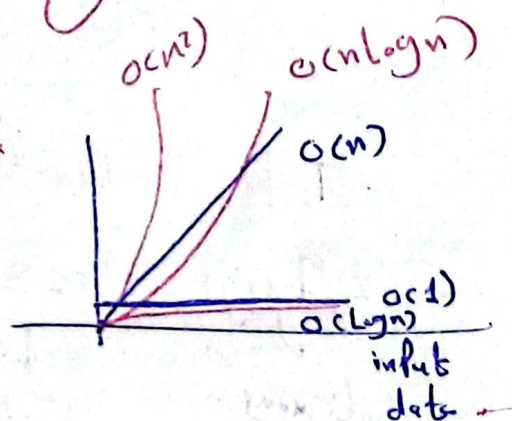 O(n²)
O(nlogn)
O(n)
O(1)
O(Logn)
input
data